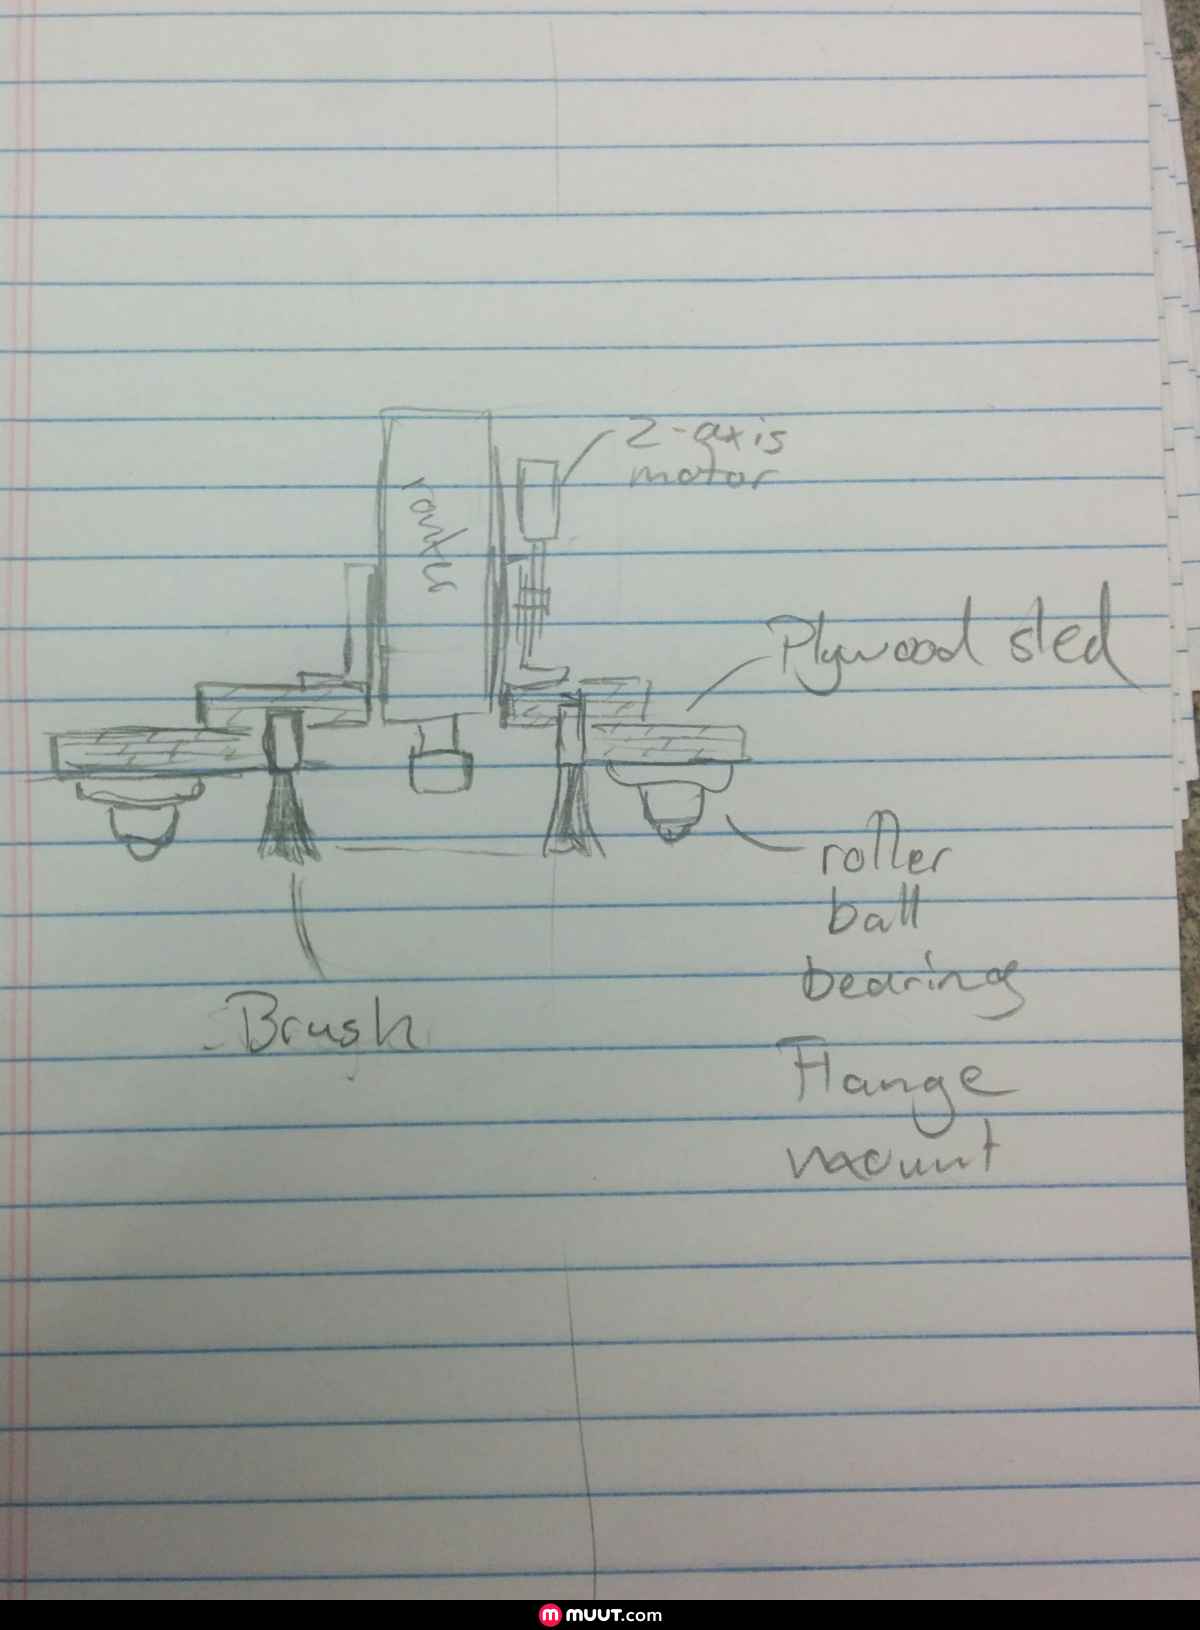 Z-axis
motor
router
Plywood sled
roller
ball
bearing
Flange
mount
Brush
muut.com